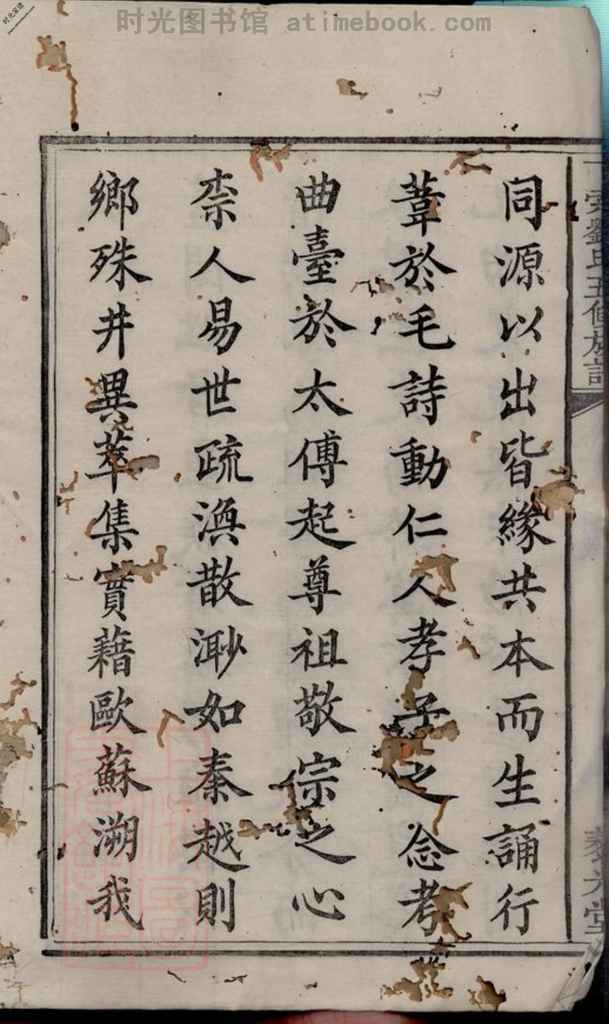 时光图书馆 atimebook.com
同源以出皆緣共本而生誦行
葦於毛詩動仁人孝子之念考
曲臺於太傅起尊祖敬宗之心
柰人易世疏渙散渺如秦越則
鄉殊井異萃集實藉歐蘇溯我
劉氏五修族譜